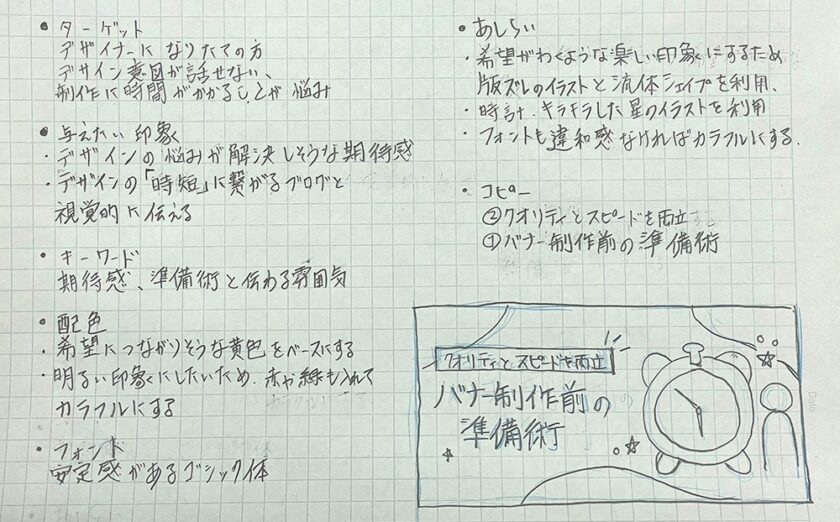 • ターゲット
デザイナーになりたての方
デザイン意図が話せない、
制作に時間がかかることが悩み
• 与えたい印象
・デザインの悩みが解決しそうな期待感
・デザインの「時短」に繋がるブログと
視覚的に伝える
• キーワード
期待感、準備術と伝わる雰囲気
• 配色
・希望につながりそうな黄色をベースにする
・明るい印象にしたいため、赤や緑も入れて
カラフルにする
• フォント
安定感があるゴシック体
• あしらい
・希望がわくような楽しい印象にするため
版ズレのイラストと流体シェイプを利用、
・時計、キラキラした星のイラストを利用
・フォントも違和感なければカラフルにする.
• コピー
②クオリティとスピードを両立
①バナー制作前の準備術
クオリティとスピードを両立
バナー制作前の
準備術
Date